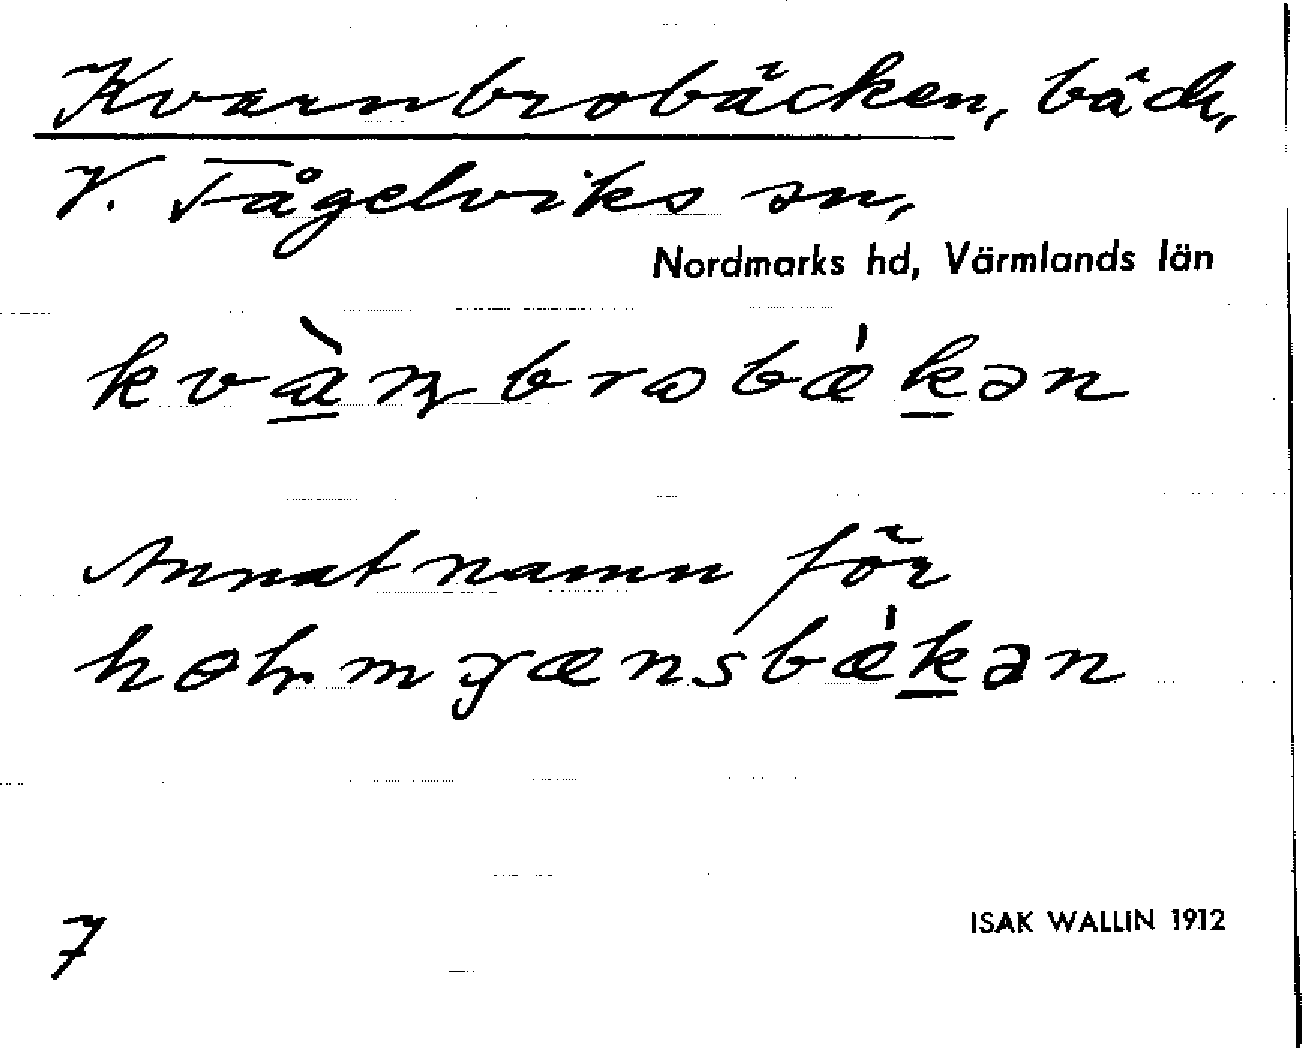 Kvarnbrobäcken, bäck,
V. Fågelviks sn,
Nordmarks hd, Värmlands län
kvàɳbrobǽkən
Annat namn för
bǽkən
7
ISAK WALLIN 1912